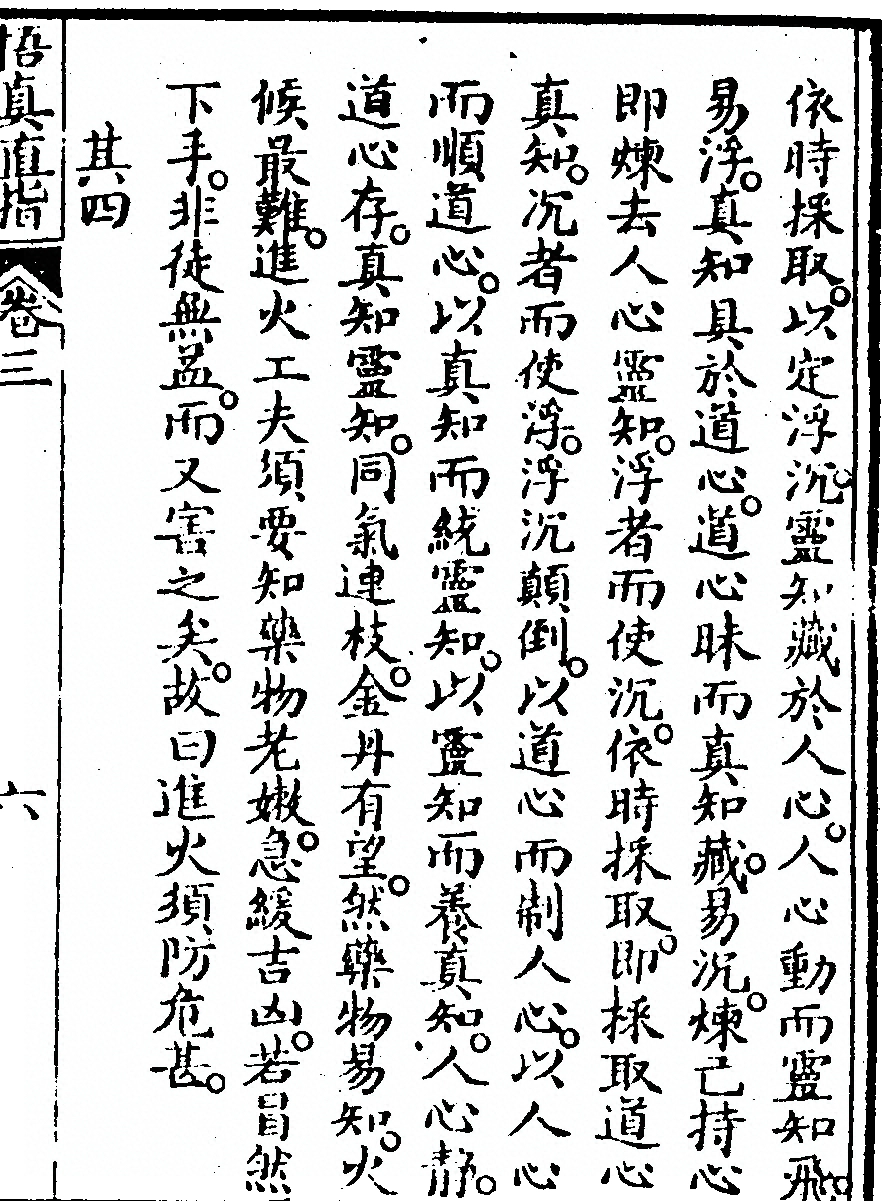 依時採取。以定浮沉。靈知藏於人心。人心動而靈知飛。
易浮。真知具於道心。道心昧而真知藏。易沉。煉己持心
即煉去人心靈知。浮者而使沉。依時採取。即採取道心
真知。沉者而使浮。浮沉顛倒。以道心而制人心。以人心
而順道心。以真知而統靈知。以靈知而養真知。人心靜。
道心存。真知靈知。同氣連枝。金丹有望。然藥物易知。火
候最難。進火工夫須要知藥物老嫩。急緩吉凶。若冒然
下手。非徒無益。而又害之矣。故曰進火須防危甚。
其四
悟真直指 卷三 六